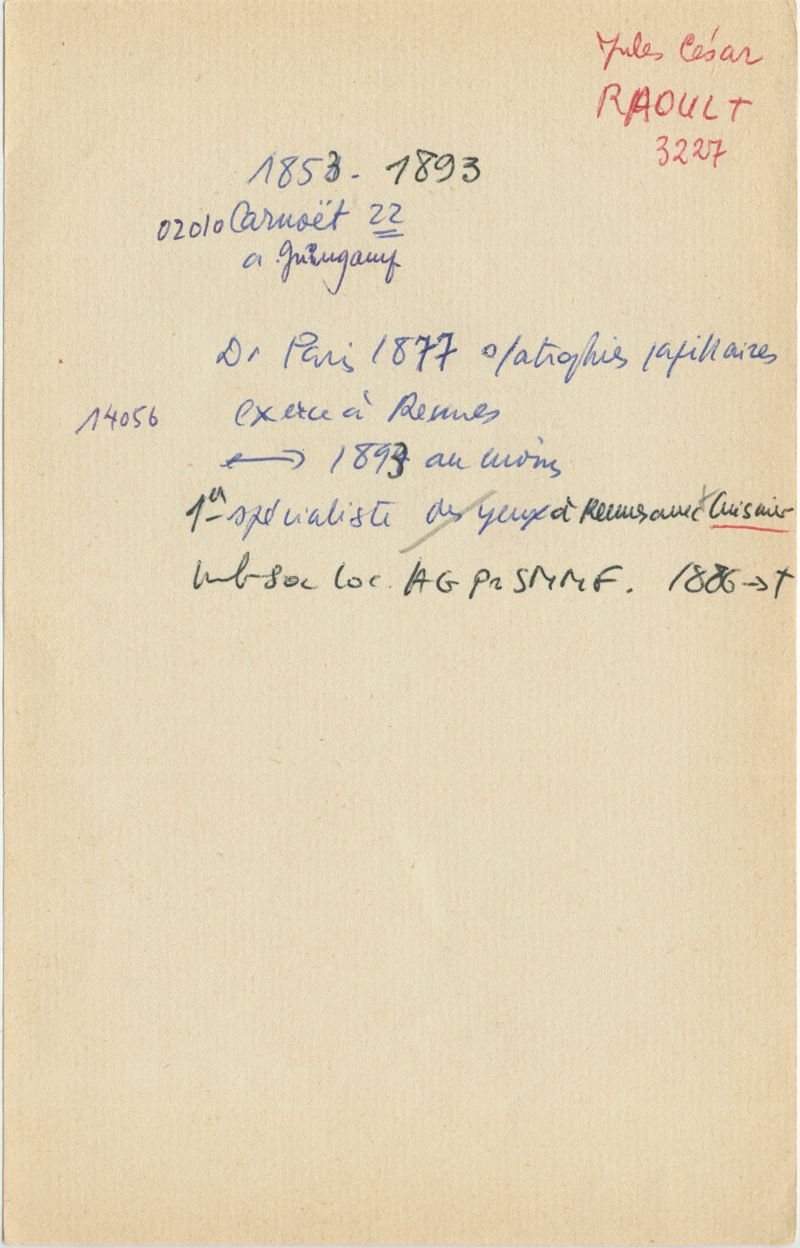 Jules César
RAOULT
3227
1853 - 1893
02010 Carnoët 22
a Guingamp
Dr Paris 1877 s/atrophies papillaires
14056 exerce à Rennes
⟷ 1893 au moins
1er spécialiste des yeux à Rennes avec Cuisnier
mb Soc loc. AG Pr SMMF. 1886 → †